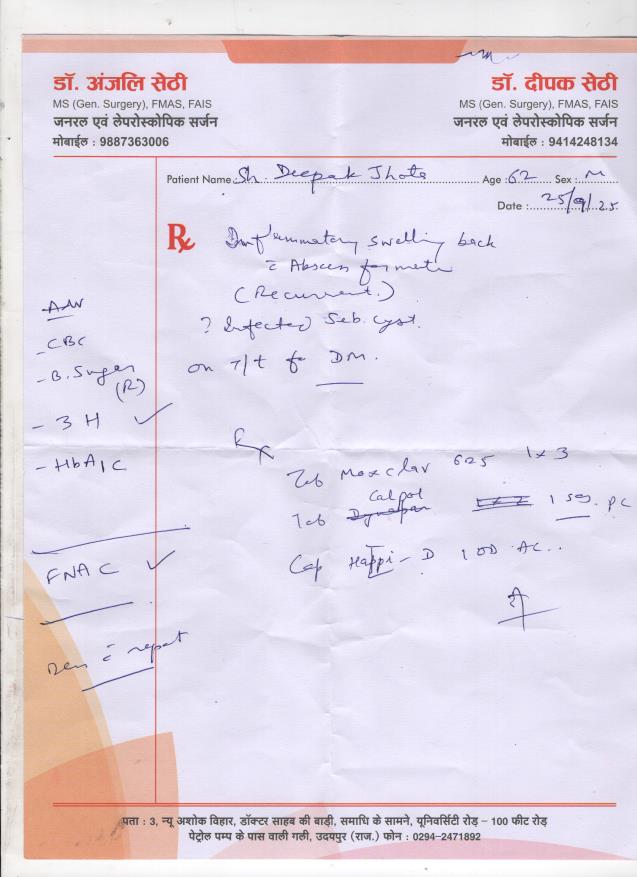 डॉ. अंजलि सेठी
MS (Gen. Surgery), FMAS, FAIS
जनरल एवं लेपरोस्कोपिक सर्जन
मोबाईल : 9887363006
डॉ. दीपक सेठी
MS (Gen. Surgery), FMAS, FAIS
जनरल एवं लेपरोस्कोपिक सर्जन
मोबाईल : 9414248134
Patient Name Sh. Deepak Jhota Age : 62 Sex : M
Date : 25/9/25
Rx
Inflammatory swelling back
c̄ Abscess formatn
(Recurrent.)
? Infected Seb. cyst.
on T/t for DM.
Adv
- CBC
- B. Sugar
(R)
- 3 H ✓
- HbA1C
FNAC ✓
Rev c̄ report
Rx
Tab Moxclav 625 1x3
Calpol
Tab 1 SOS PC
Cap Happi-D 1 OD AC..
पता : 3, न्यू अशोक विहार, डॉक्टर साहब की बाड़ी, समाधि के सामने, यूनिवर्सिटी रोड़ - 100 फीट रोड़
पेट्रोल पम्प के पास वाली गली, उदयपुर (राज.) फोन : 0294-2471892